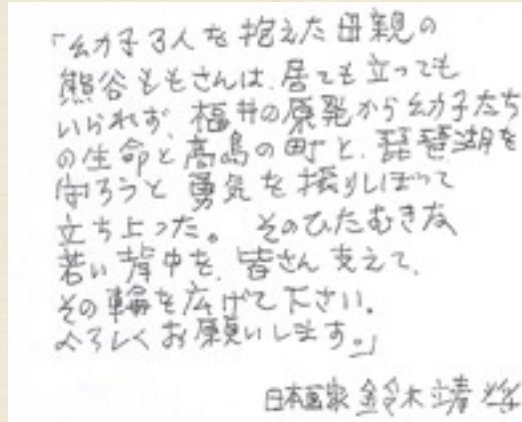 「幼子3人を抱えた母親の
熊谷ももさんは、居ても立っても
いられず、福井の原発から幼子たち
の生命と高島の町と、琵琶湖を
守ろうと勇気を振りしぼって
立ち上った。そのひたむきな
若い背中を、皆さん支えて、
その輪を広げて下さい。
よろしくお願いします。」
日本画家 鈴木靖将